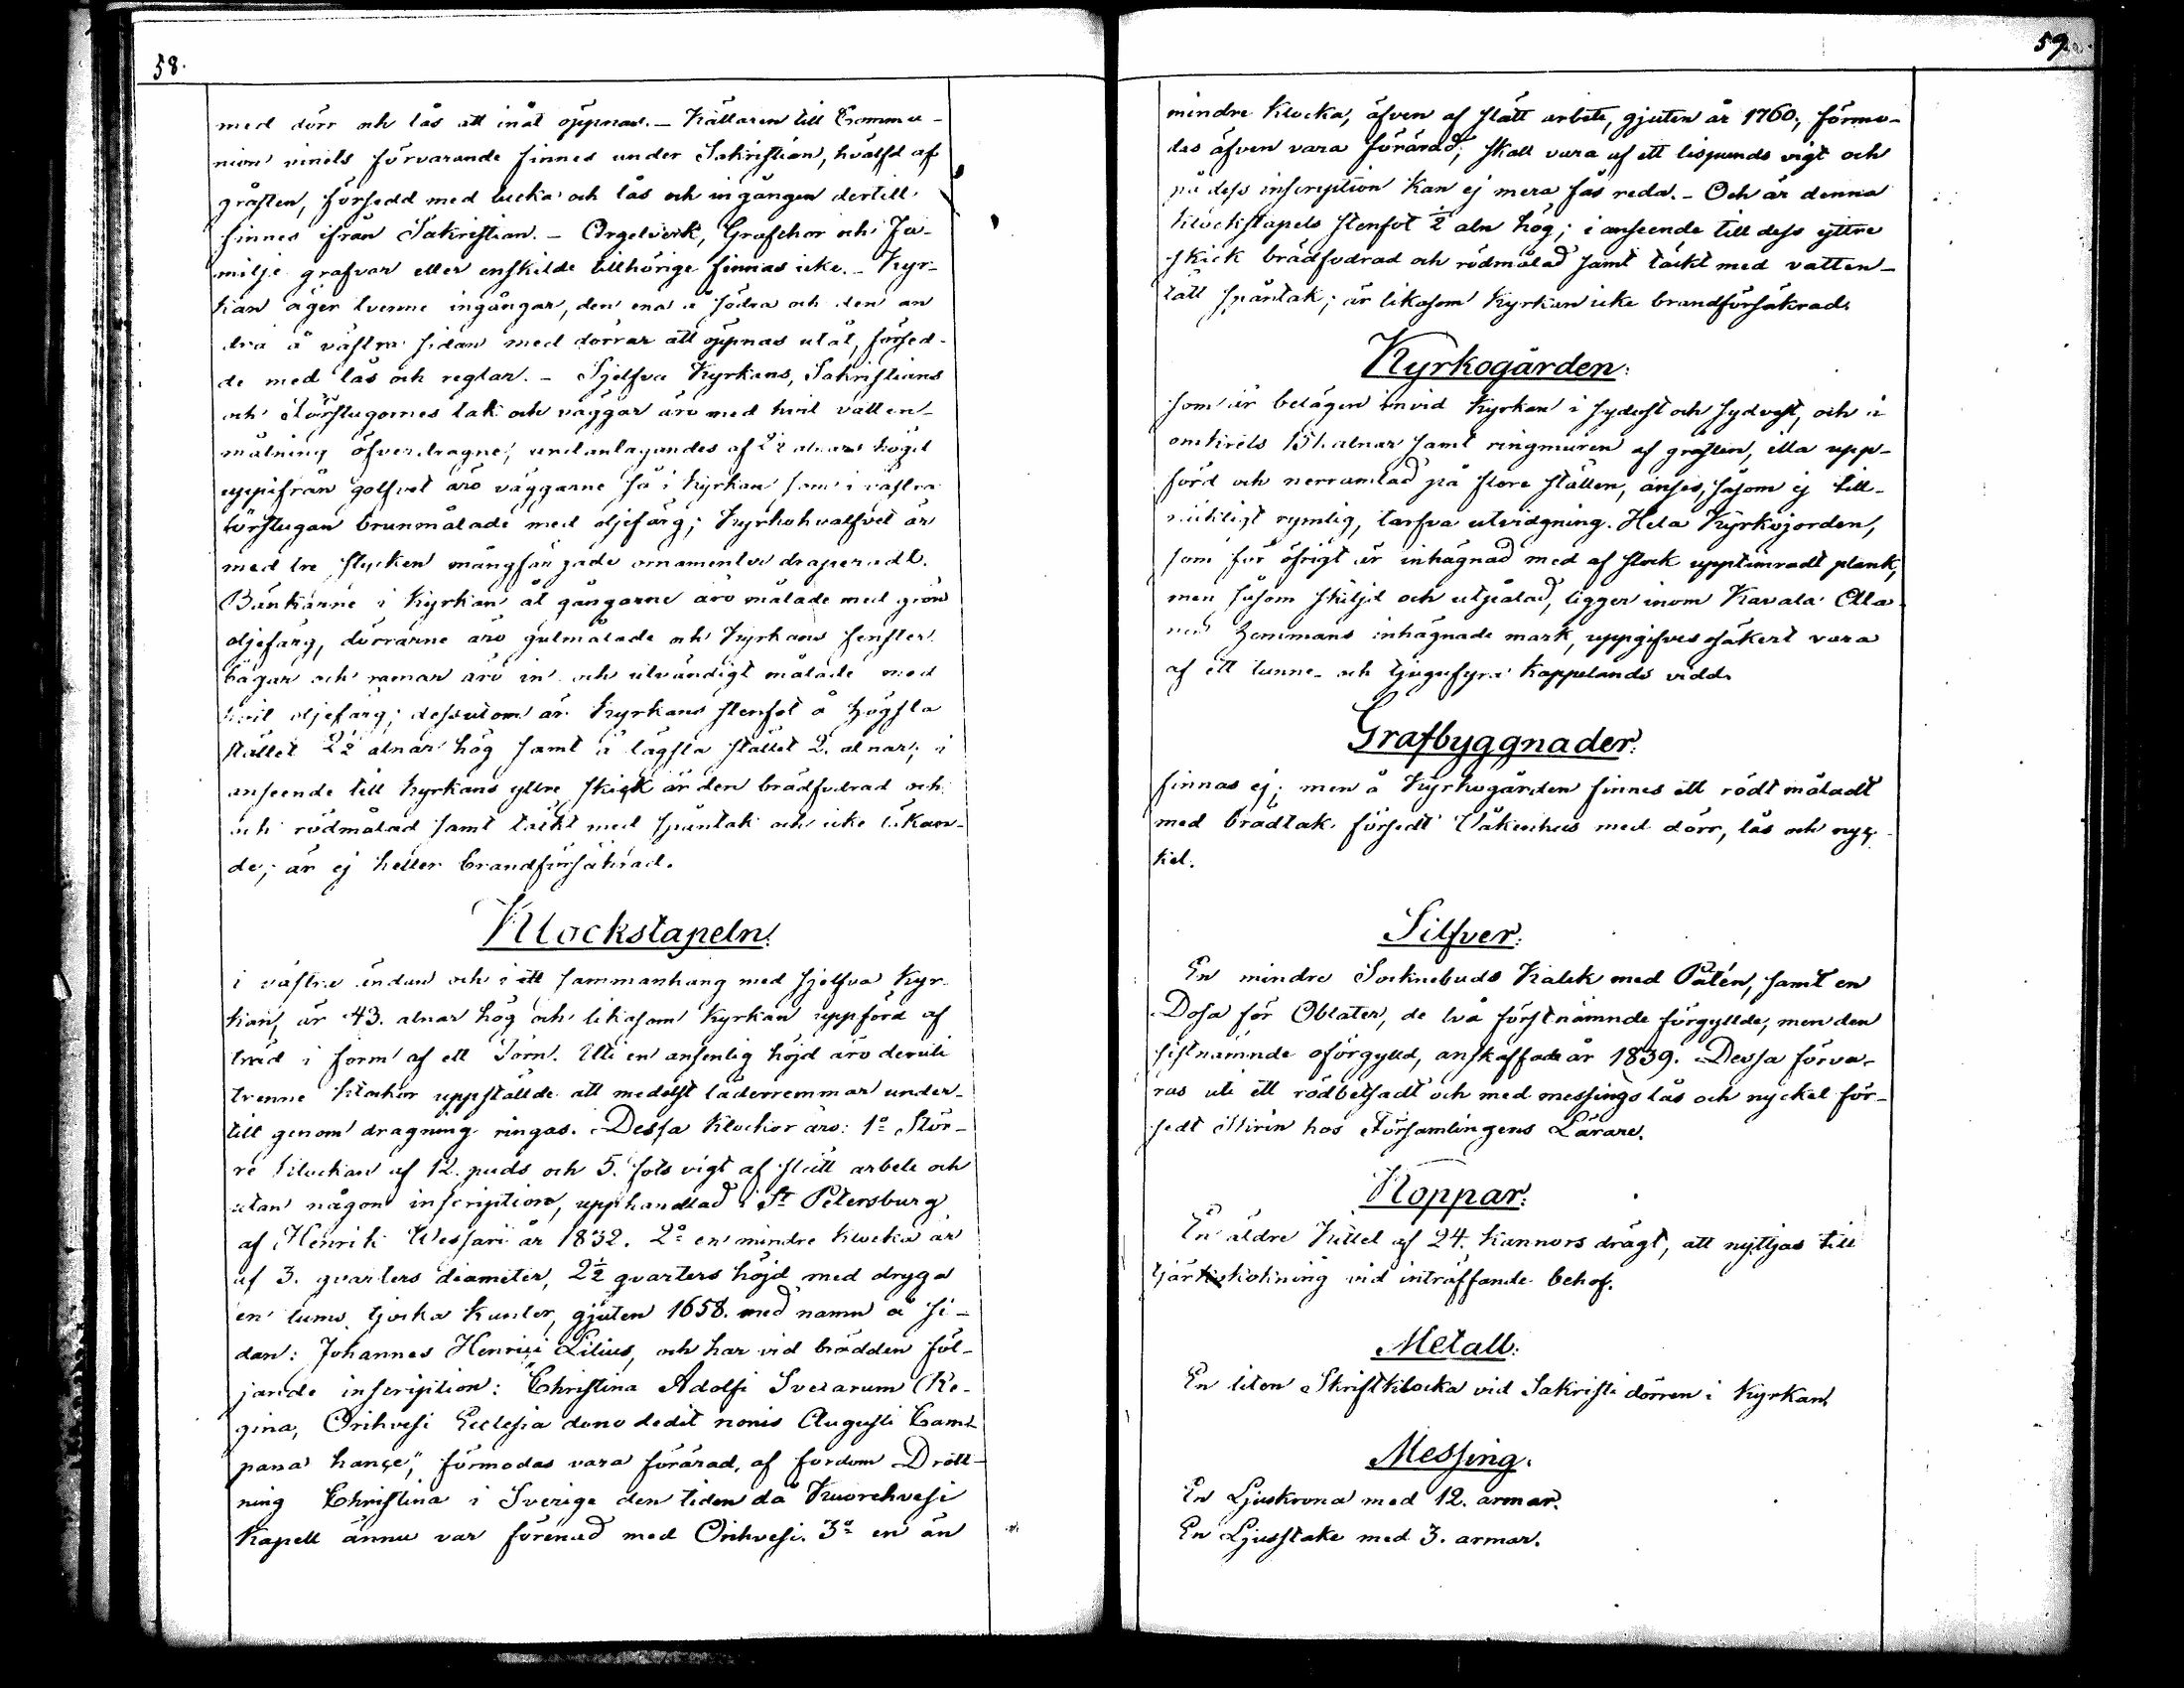 58.
med dörr och lås att inåt öppnas. _ Källaren till Commu-
nion vinets förvarande finnes under Sakristian, hvälfd af
gråsten, försedd med lucka och lås och ingången dertill
finnes ifrån Sakristian. _ Orgelverk, Grafchor och Fa-
milje grafvar eller enskilde tillhörige finnas icke. _ Kyr-
kan äger tvenne ingångar, den ena å södra och den an
dra å västra sidan med dörrar att öppnas utåt, försed-
de med lås och reglar. _ Sjelfva Kyrkans, Sakristians
och Förstugornes tak och väggar äro med hvit vatten-
målning öfverdragne, undantagandes af 2½ alnars högd
uppifrån golfvet äro väggarne så i Kyrkan som i västra
förstugan brunmålade med oljefärg; Kyrkohvalfvet är
med tre stycken mångfärgade ornamenter draperadt.
Bänkarne i Kyrkan åt gångarne äro målade med grön
oljefärg, dörrarne äro gulmålade och Kyrkans fenster
bågar och ramar äro in och utvändigt målade med
hvit oljefärg; dessutom är Kyrkans stenfot å högsta
stället 2½ alnar hög samt å lägsta stället 2. alnar; i
anseende till Kyrkans yttre skick är den brädfodrad och
och rödmålad samt täckt med spåntak och icke läkan-
de; är ej heller brandförsäkrad.
Klockstapeln.
i västra ändan och i ett sammanhang med sjelfva Kyr-
kan, är 43. alnar hög och likasom Kyrkan uppförd af
träd i form af ett Torn. Uti en ansenlig höjd äro deruti
trenne klockor uppställde att medelst läderremmar under-
till genom dragning ringas. Dessa klockor äro: 1º Stör-
re klockan af 12. puds och 5. vigt af slätt arbete och
utan någon inscription, upphandlad i St Petersburg
af Henrik Wessari år 1832. 2º en mindre klocka är
af 3. qvarters diameter, 2½ qvarters höjd med dryga
en tums tjocka kanter, gjuten 1658. med namn å si-
dan: Johannes Henrici Lilius, och har vid brädden föl-
jande inscription: "Christina Adolfi Svecarum Re-
gina, Orihvesi Ecclesia dono dedit nonis Augusti Cam-
pana hance", förmodas vara förärad, af fordom Drott-
ning Christina i Sverige den tiden då Kuorehvesi
Kapell ännu var förenad med Orihvesi. 3º en än
59.
mindre klocka, äfven af slätt arbete, gjuten år 1760, förmo-
das äfven vara förärad, skall vara af ett lispunds vigt och
på dess inscription kan ej mera fås reda. _ Och är denna
klockstapels stenfot ½ aln hög; i anseende till dess yttre
skick brädfodrad och rödmålad samt täckt med vatten-
tätt spåntak; är likasom Kyrkan icke brandförsäkrad.
Kyrkogården.
som är belägen invid Kyrkan i sydost och sydvest, och i
omkrets 151. alnar samt ringmuren af gråsten, illa upp-
förd och nerramlad på flere ställen, anses, såsom ej till-
räckligt rymlig, tarfva utvidgning. Hela Kyrkojorden,
som för öfrigt är inhägnad med af stock upptimradt plank,
men såsom skiljd och utpålad, ligger inom Karala Olla
nen hemmans inhägnade mark, uppgifves osäkert vara
af ett tunne- och tjugufyra Kappelands vidd.
Grafbyggnader.
finnas ej; men å Kyrkogården finnes ett rödt måladt
med brädtak försedt Väkenhus med dörr, lås och nyc-
kel.
Silfver.
En mindre Socknebuds Kalk med Patén, samt en
Dosa för Oblater, de två förstnämnde förgyllde, men den
sistnämnde oförgylld, anskaffade år 1839. Dessa förva-
ras uti ett rödbetsadt och med messings lås och nyckel för-
sedt Skrin hos Församlingens Lärare.
Koppar.
En äldre Kittel af 24. Kannors drägt, att nyttjas till
tjärkokning vid inträffande behof.
Metall.
En liten Skriftklocka vid Sakristi dörren i Kyrkan.
Messing.
En Ljuskrona med 12. armar.
En Ljusstake med 3. armar.